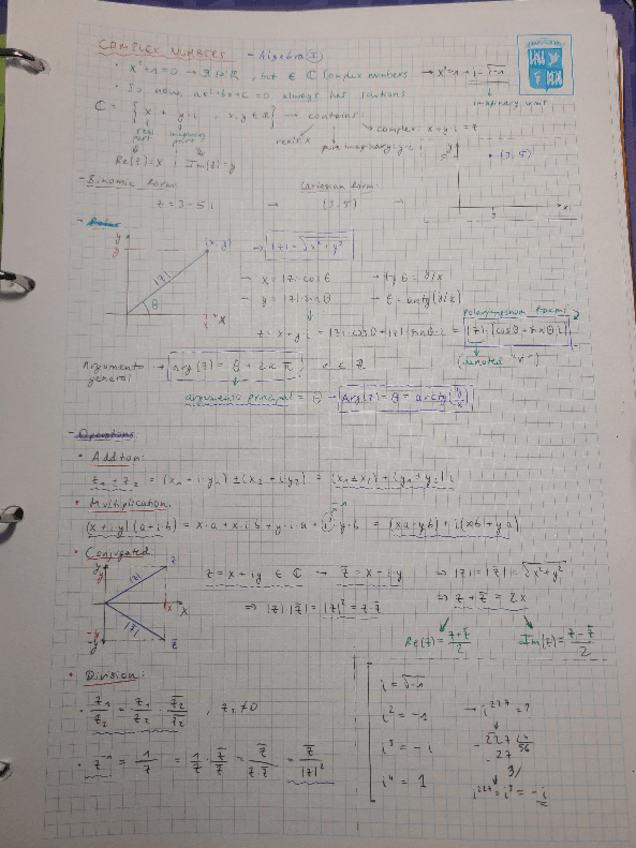 COMPLEX NUMBERS - Algebra I
• x²+1=0 → ∄ sol ℝ, but ∈ ℂ Complex numbers → x²=-1 → i=√-1
imaginary unit
• So, now, ax²+bx+c=0 always has solutions
ℂ = { x + y·i , x,y ∈ ℝ } → contains:
real part imaginary part
reals: x
pure imaginary: y·i
complex: x+y·i = z
Re(z)=x ; Im(z)=y
- Binomic form: Cartesian form:
z = 3-5i → (3,5) →
(3,5)
- Polar
(x,y) → |z| = √x²+y²
→ x = |z|·cosθ → tg θ = y/x
→ y = |z|·sinθ → θ = arctg(y/x)
z = x+y·i = |z|·cosθ+|z|·sinθ·i = |z|·[cosθ+sinθ·i]
(denoted "r")
Argumento general → arg(z) = θ + 2kπ, k ∈ ℤ
argumento principal = θ → Arg(z)=θ= arctg(y/x)
- Operations:
• Addition:
z₁±z₂ = (x₁+i·y₁)±(x₂+i·y₂) = (x₁±x₂)+(y₁±y₂)i
• Multiplication:
-1
(x+iy)(a+i·b) = x·a+x·i·b+y·i·a+i²·y·b = (xa-yb)+i(xb+ya)
• Conjugated
z = x+iy ∈ ℂ → z̄ = x-i·y ⇒ |z|=|z̄|=√x²+y²
⇒ |z|·|z̄|=|z|²=z·z̄ ⇒ z+z̄=2x
Re(z)=z+z̄/2 Im(z)=z-z̄/2
• Division:
• z₁/z₂ = z₁/z₂ · z̄₂/z̄₂ , z₂≠0
• z⁻¹ = 1/z = 1/z · z̄/z̄ = z̄/z·z̄ = z̄/|z|²
i = √-1
i² = -1 → i²²⁷=?
i³ = -i
227 4
27 56
3
i⁴ = 1
i²²⁷=i³=-i